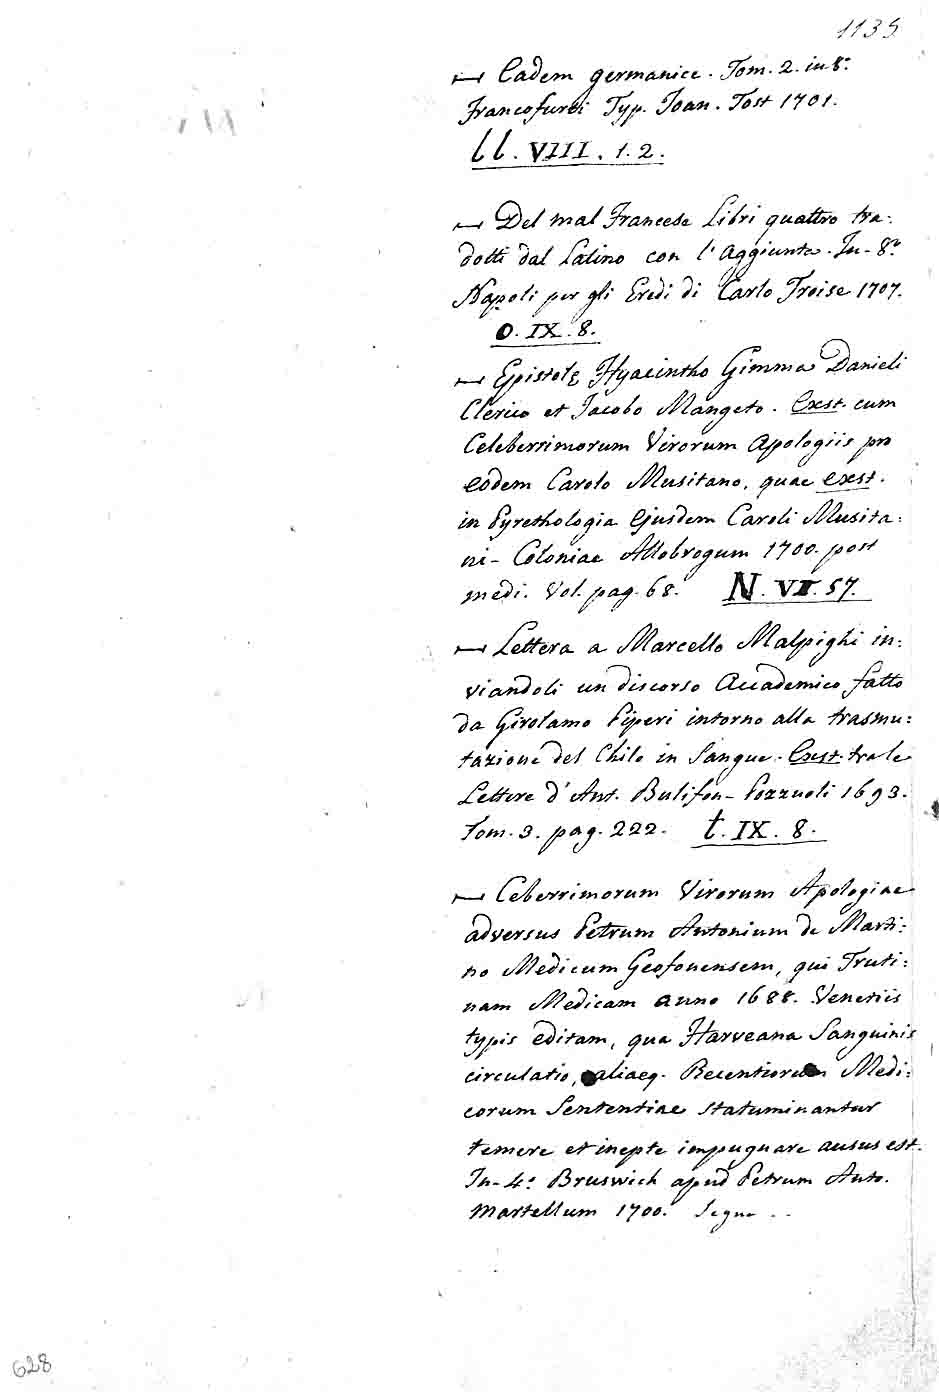 1135
⟼ Eadem germanice. Tom. 2. in 8.º
Francofurti Typ. Joan. Tost 1701.
ll. VIII. 1. 2.
⟼ Del mal Francese Libri quattro tra:
dotti dal Latino con l'Aggiunta. In-8.º
Napoli per gli Eredi di Carlo Troise 1707.
O. IX. 8.
⟼ Epistolę Hyacintho Gimma Danieli
Clerico et Jacobo Mangeto. Exst. cum
Celeberrimorum Virorum Apologiis pro
eodem Carolo Musitano, quae exst.
in Pyrethologia Ejusdem Caroli Musita:
ni- Coloniae Allobrogum 1700. post
medi. Vol. pag. 68. N. VII. 57.
⟼ Lettera a Marcello Malpighi in:
viandoli un discorso Accademico fatto
da Girolamo Piperi intorno alla trasmu:
tazione del Chilo in Sangue. Exst. tra le
Lettere d'Ant. Bulifon- Pozzuoli 1693.
Tom. 3. pag. 222. t. IX. 8.
⟼ Ceberrimorum Virorum Apologiae
adversus Petrum Antonium de Marti:
no Medicum Geofonensem, qui Truti:
nam Medicam anno 1688. Venetiis
typis editam, qua Harveana Sanguinis
circulatio, aliaeq. Recentiorum Medi:
corum Sententiae statuminantur
temere et inepte impugnare ausus est.
In-4.º Bruswich apud Petrum Anto.
Martellum 1700. Segue ..
628